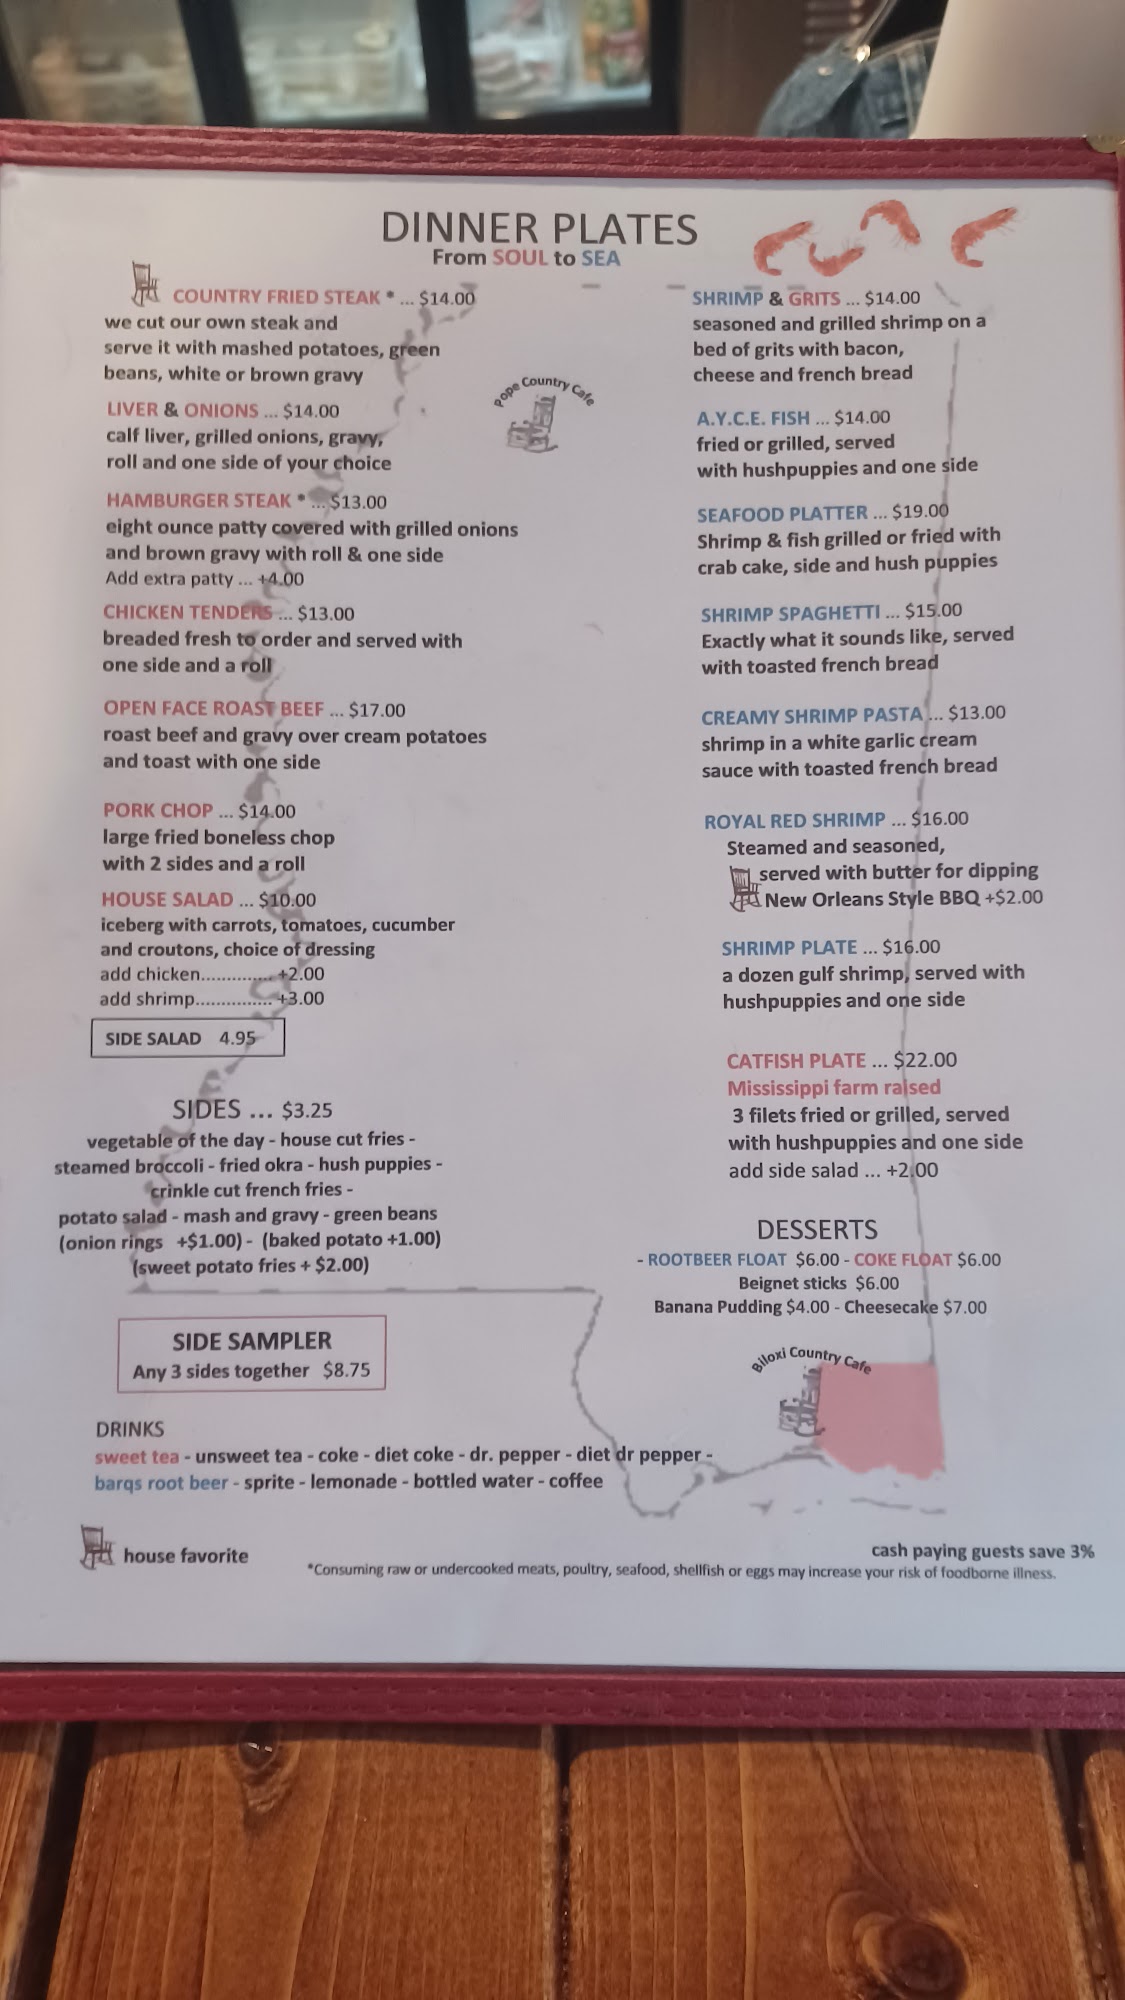 DINNER PLATES
From SOUL to SEA
COUNTRY FRIED STEAK * ... $14.00
we cut our own steak and
serve it with mashed potatoes, green
beans, white or brown gravy
LIVER & ONIONS ... $14.00
calf liver, grilled onions, gravy,
roll and one side of your choice
HAMBURGER STEAK * ... $13.00
eight ounce patty covered with grilled onions
and brown gravy with roll & one side
Add extra patty ... +4.00
CHICKEN TENDERS ... $13.00
breaded fresh to order and served with
one side and a roll
OPEN FACE ROAST BEEF ... $17.00
roast beef and gravy over cream potatoes
and toast with one side
PORK CHOP ... $14.00
large fried boneless chop
with 2 sides and a roll
HOUSE SALAD ... $10.00
iceberg with carrots, tomatoes, cucumber
and croutons, choice of dressing
add chicken.............. +2.00
add shrimp............... +3.00
SIDE SALAD 4.95
SIDES ... $3.25
vegetable of the day - house cut fries -
steamed broccoli - fried okra - hush puppies -
crinkle cut french fries -
potato salad - mash and gravy - green beans
(onion rings +$1.00) - (baked potato +1.00)
(sweet potato fries + $2.00)
SIDE SAMPLER
Any 3 sides together $8.75
Pope Country Cafe
SHRIMP & GRITS ... $14.00
seasoned and grilled shrimp on a
bed of grits with bacon,
cheese and french bread
A.Y.C.E. FISH ... $14.00
fried or grilled, served
with hushpuppies and one side
SEAFOOD PLATTER ... $19.00
Shrimp & fish grilled or fried with
crab cake, side and hush puppies
SHRIMP SPAGHETTI ... $15.00
Exactly what it sounds like, served
with toasted french bread
CREAMY SHRIMP PASTA ... $13.00
shrimp in a white garlic cream
sauce with toasted french bread
ROYAL RED SHRIMP ... $16.00
Steamed and seasoned,
served with butter for dipping
New Orleans Style BBQ +$2.00
SHRIMP PLATE ... $16.00
a dozen gulf shrimp, served with
hushpuppies and one side
CATFISH PLATE ... $22.00
Mississippi farm raised
3 filets fried or grilled, served
with hushpuppies and one side
add side salad ... +2.00
DESSERTS
- ROOTBEER FLOAT $6.00 - COKE FLOAT $6.00
Beignet sticks $6.00
Banana Pudding $4.00 - Cheesecake $7.00
Biloxi Country Cafe
DRINKS
sweet tea - unsweet tea - coke - diet coke - dr. pepper - diet dr pepper -
barqs root beer - sprite - lemonade - bottled water - coffee
house favorite
cash paying guests save 3%
*Consuming raw or undercooked meats, poultry, seafood, shellfish or eggs may increase your risk of foodborne illness.